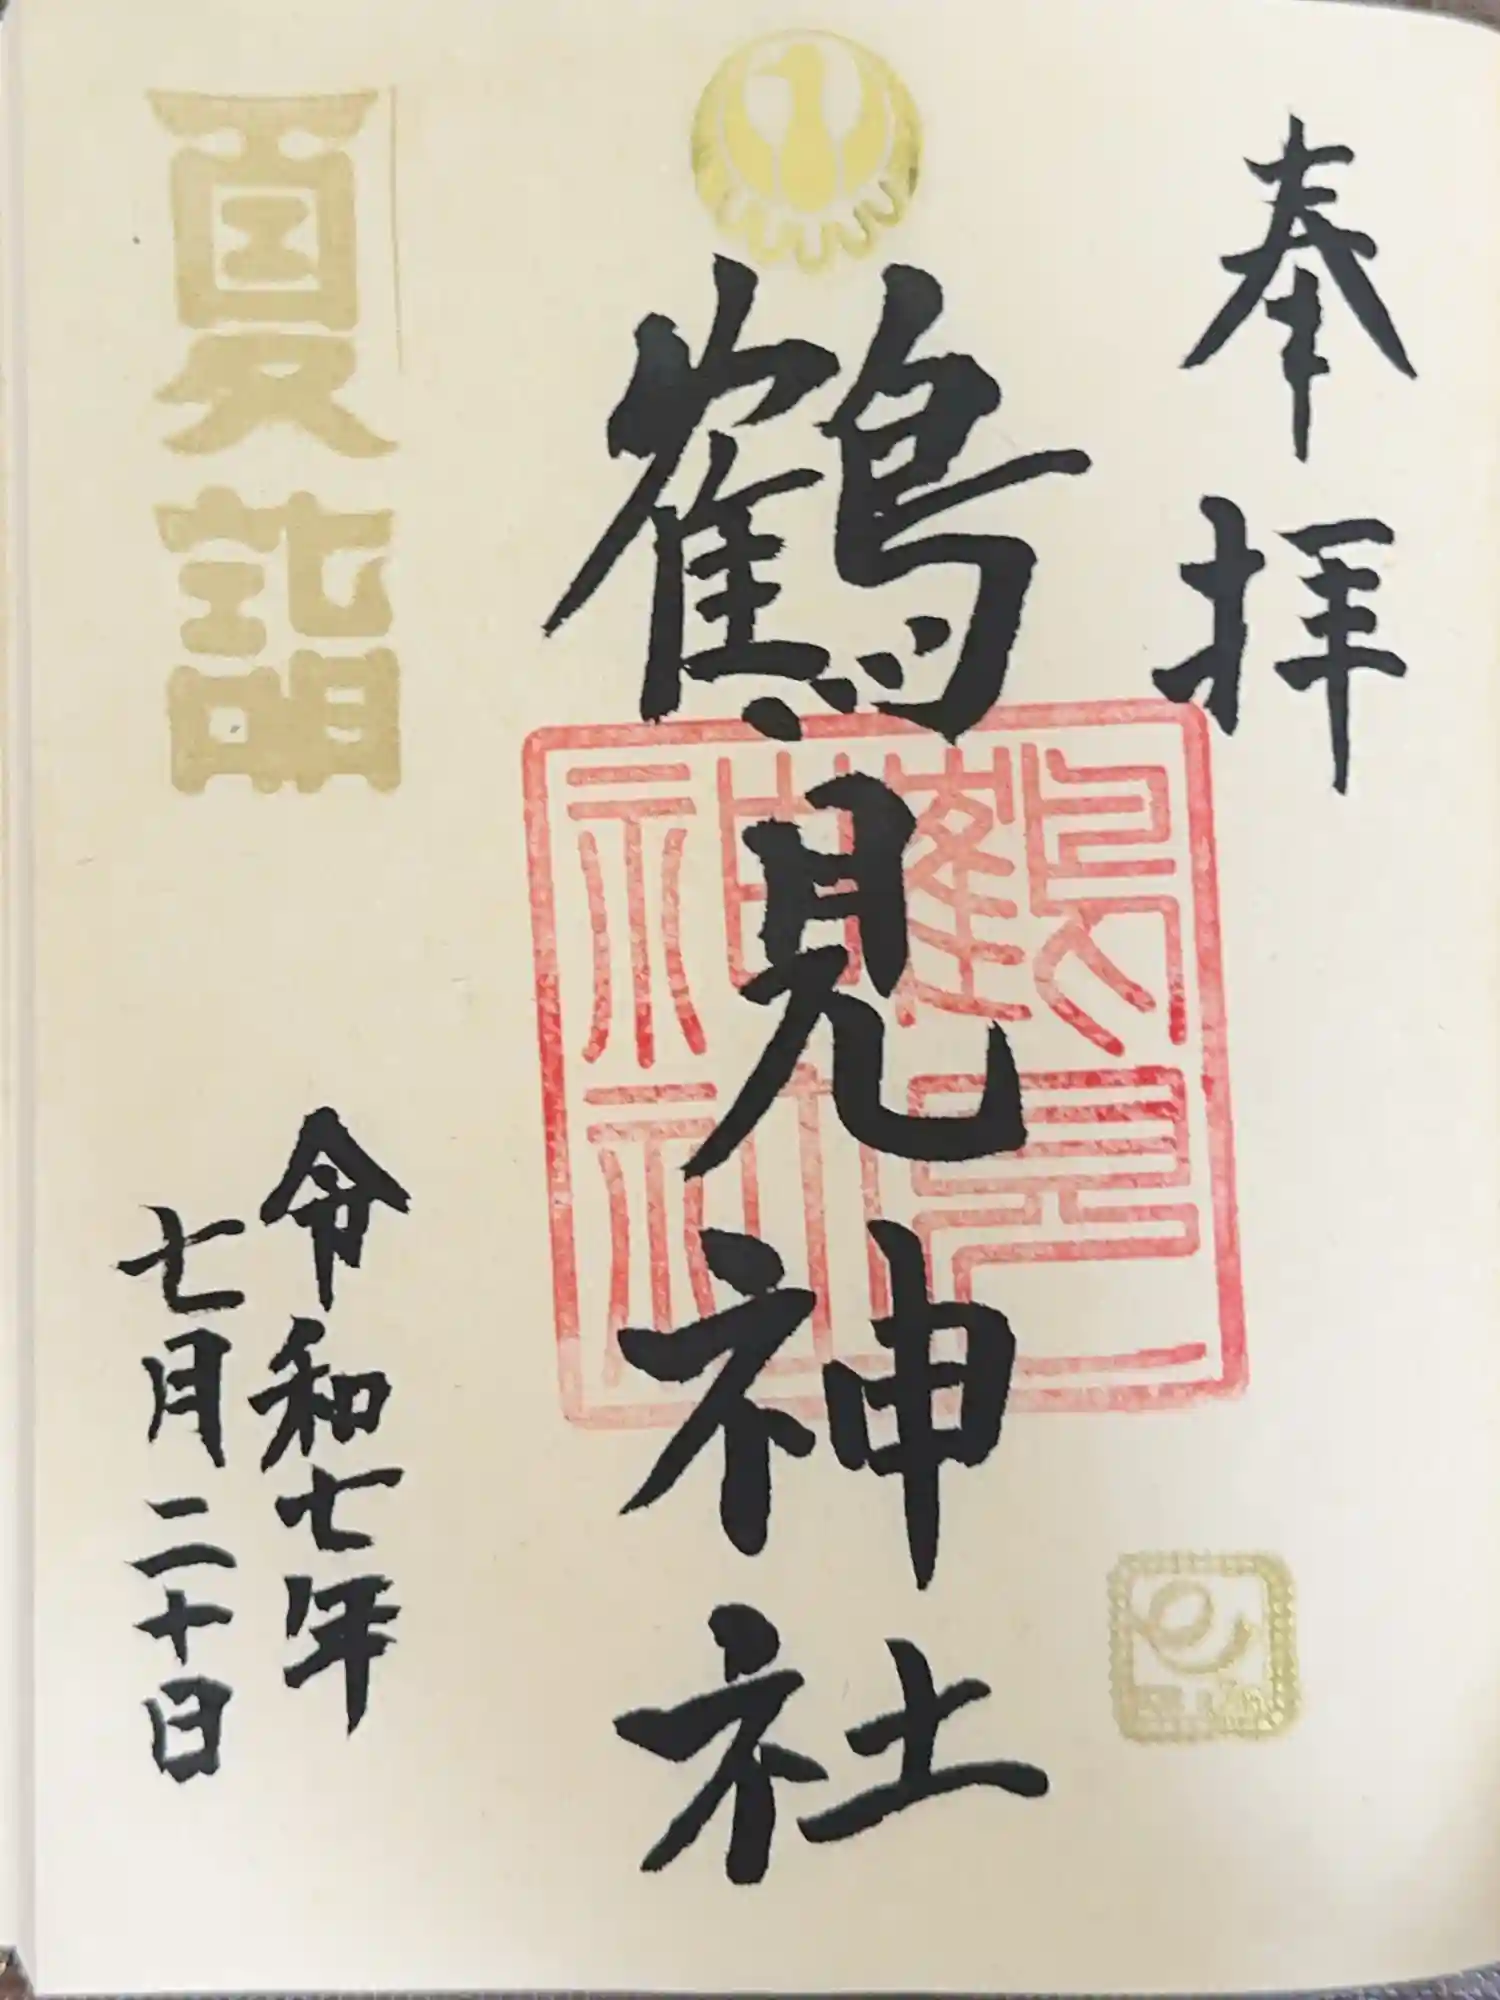 奉拝
鶴見神社
鶴見神社
夏詣
令和七年
七月二十日